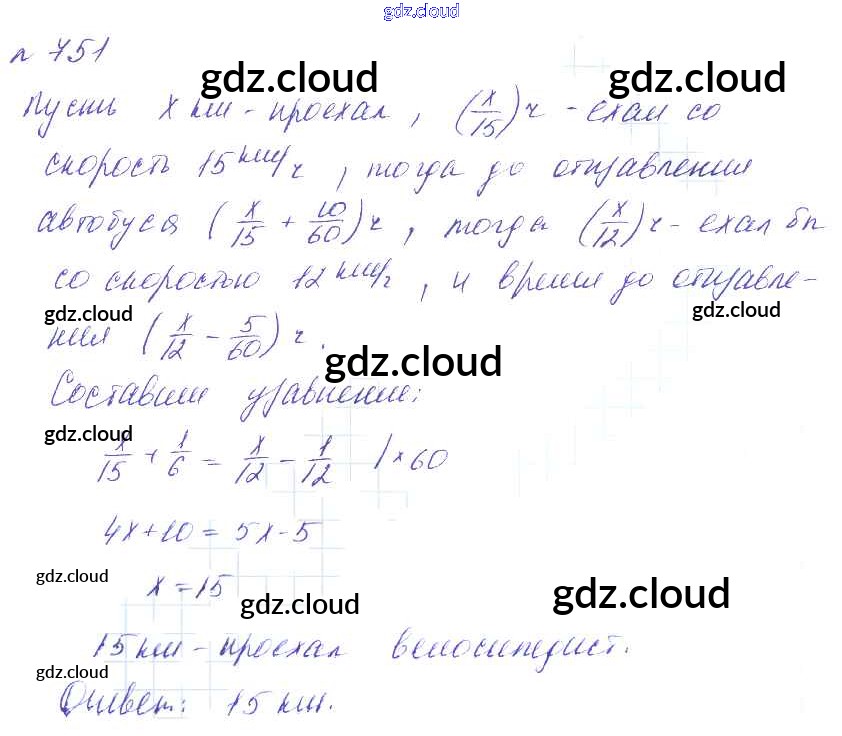 gdz.cloud
№ 751
gdz.cloud gdz.cloud
Пусть x км - проехал, (x/15) ч - ехал со
скорость 15 км/ч, тогда до отправления
автобуса (x/15 + 10/60) ч, тогда (x/12) ч - ехал бы
со скоростью 12 км/ч, и время до отправле-
gdz.cloud gdz.cloud
ния (x/12 - 5/60) ч.
gdz.cloud
Составим уравнение:
gdz.cloud
x/15 + 1/6 = x/12 - 1/12 | × 60
4x + 10 = 5x - 5
gdz.cloud
x = 15
gdz.cloud gdz.cloud
15 км - проехал велосипедист.
gdz.cloud
Ответ: 15 км.